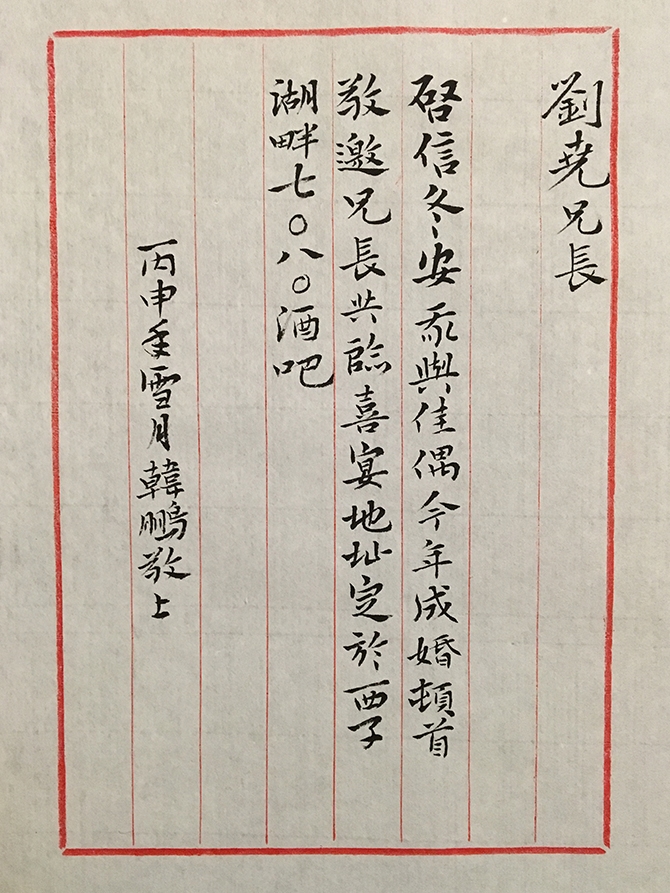 劉尭兄長
啓信冬安 余與佳偶今年成婚頓首
敬邀兄長共臨喜宴地址定於西子
湖畔七〇八〇酒吧
丙申年雪月韓鵬敬上